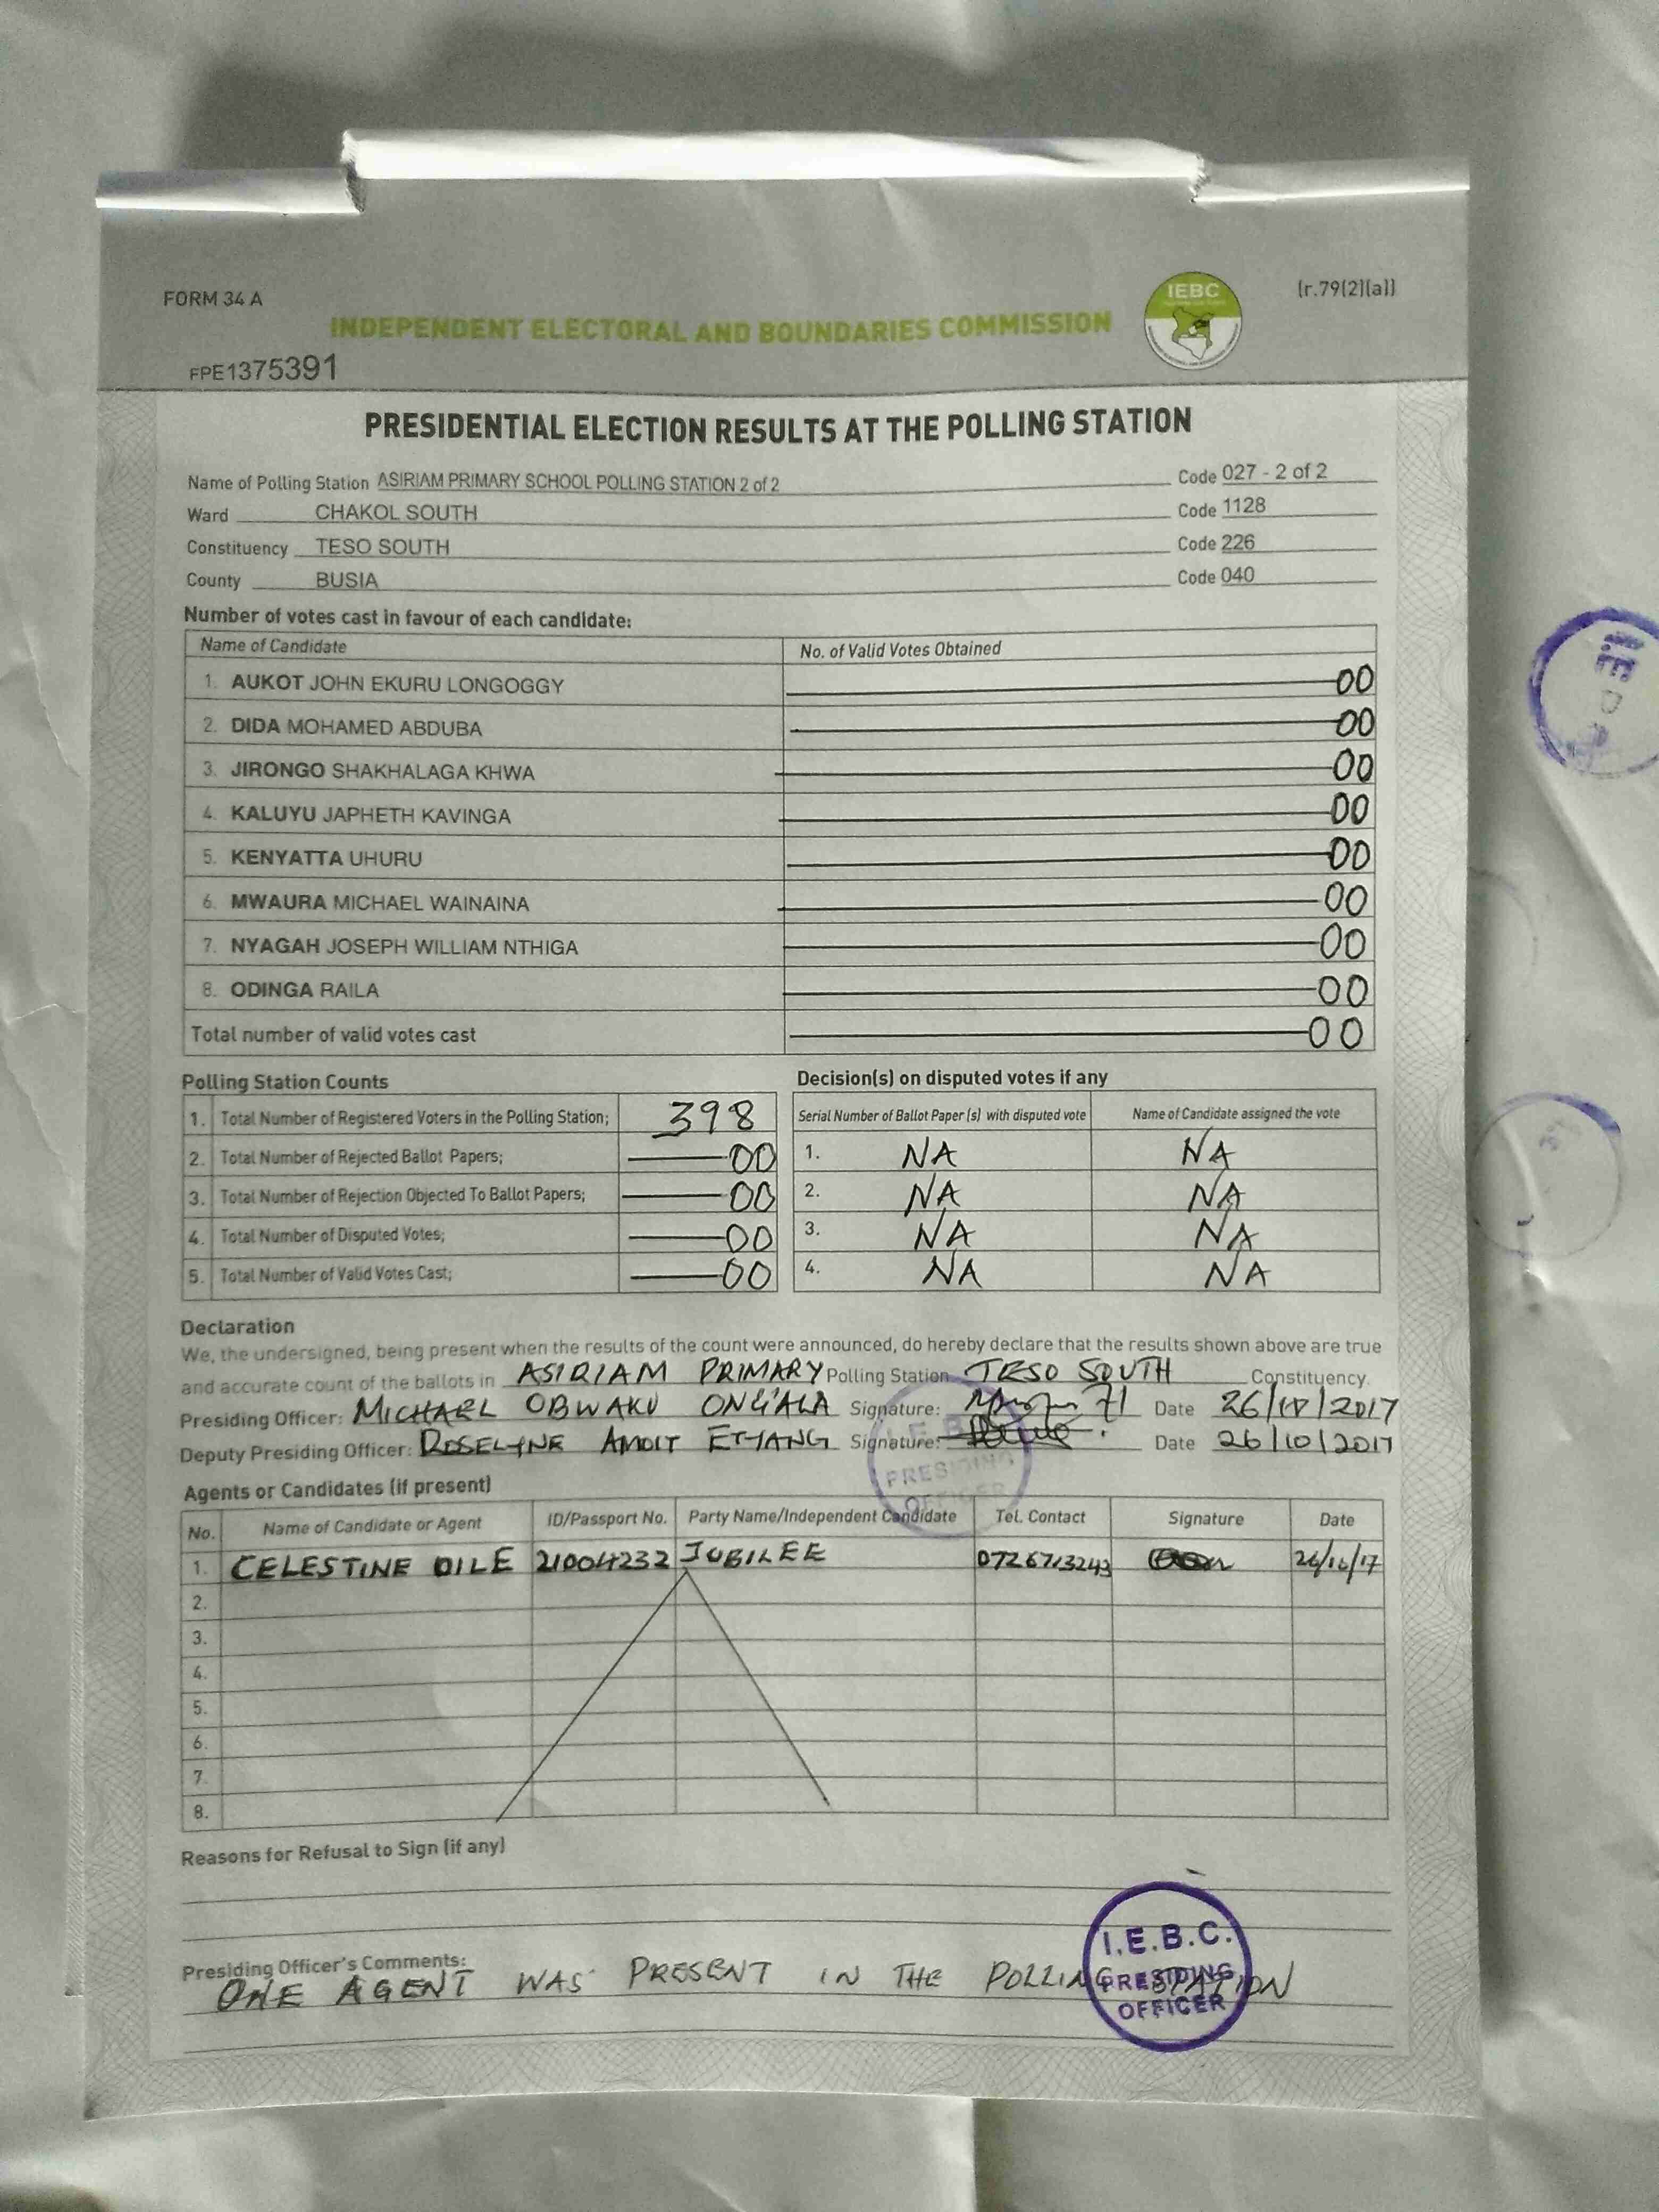 FORM 34 A
IEBC
(r.79(2)(a))
INDEPENDENT ELECTORAL AND BOUNDARIES COMMISSION
FPE1375391
PRESIDENTIAL ELECTION RESULTS AT THE POLLING STATION
Name of Polling Station ASIRIAM PRIMARY SCHOOL POLLING STATION 2 of 2 Code 027 - 2 of 2
Ward CHAKOL SOUTH Code 1128
Constituency TESO SOUTH Code 226
County BUSIA Code 040
Number of votes cast in favour of each candidate:
Name of Candidate No. of Valid Votes Obtained
1. AUKOT JOHN EKURU LONGOGGY 00
2. DIDA MOHAMED ABDUBA 00
3. JIRONGO SHAKHALAGA KHWA 00
4. KALUYU JAPHETH KAVINGA 00
5. KENYATTA UHURU 00
6. MWAURA MICHAEL WAINAINA 00
7. NYAGAH JOSEPH WILLIAM NTHIGA 00
8. ODINGA RAILA 00
Total number of valid votes cast 00
Polling Station Counts
1. Total Number of Registered Voters in the Polling Station; 398
2. Total Number of Rejected Ballot Papers; 00
3. Total Number of Rejection Objected To Ballot Papers; 00
4. Total Number of Disputed Votes; 00
5. Total Number of Valid Votes Cast; 00
Decision(s) on disputed votes if any
Serial Number of Ballot Paper (s) with disputed vote Name of Candidate assigned the vote
1. NA NA
2. NA NA
3. NA NA
4. NA NA
Declaration
We, the undersigned, being present when the results of the count were announced, do hereby declare that the results shown above are true
and accurate count of the ballots in ASIRIAM PRIMARY Polling Station TESO SOUTH Constituency.
Presiding Officer: MICHAEL OBWAKU ONG'ALA Signature: Date 26/10/2017
Deputy Presiding Officer: ROSELYNE AMOIT ETYANG Signature: Date 26/10/2017
I.E.B.C.
PRESIDING
OFFICER
Agents or Candidates (if present)
No. Name of Candidate or Agent ID/Passport No. Party Name/Independent Candidate Tel. Contact Signature Date
1. CELESTINE OILE 21004232 JUBILEE 0726713243 26/10/17
2.
3.
4.
5.
6.
7.
8.
Reasons for Refusal to Sign (if any)
Presiding Officer's Comments:
ONE AGENT WAS PRESENT IN THE POLLING STATION
I.E.B.C.
PRESIDING
OFFICER